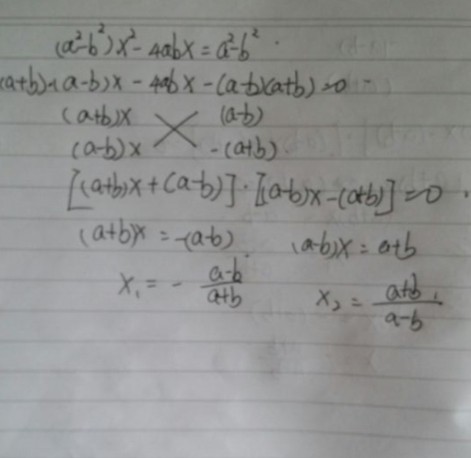 (a²-b²)x²-4abx=a²-b².
(a+b)·(a-b)x-4abx-(a-b)(a+b)=0
(a+b)x (a-b)
(a-b)x -(a+b)
[(a+b)x+(a-b)]·[(a-b)x-(a+b)]=0.
(a+b)x=-(a-b) (a-b)x=a+b
x₁=-\frac{a-b}{a+b} x₂=\frac{a+b}{a-b}